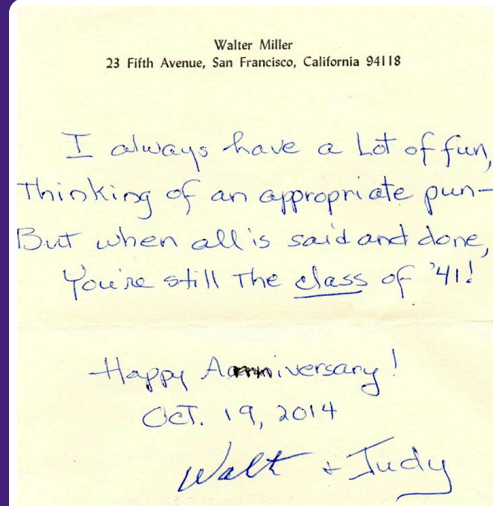 Walter Miller
23 Fifth Avenue, San Francisco, California 94118
I always have a Lot of fun,
Thinking of an appropriate pun-
But when all is said and done,
You're still The class of '41!
Happy Anniversary!
Oct. 19, 2014
Walt + Judy